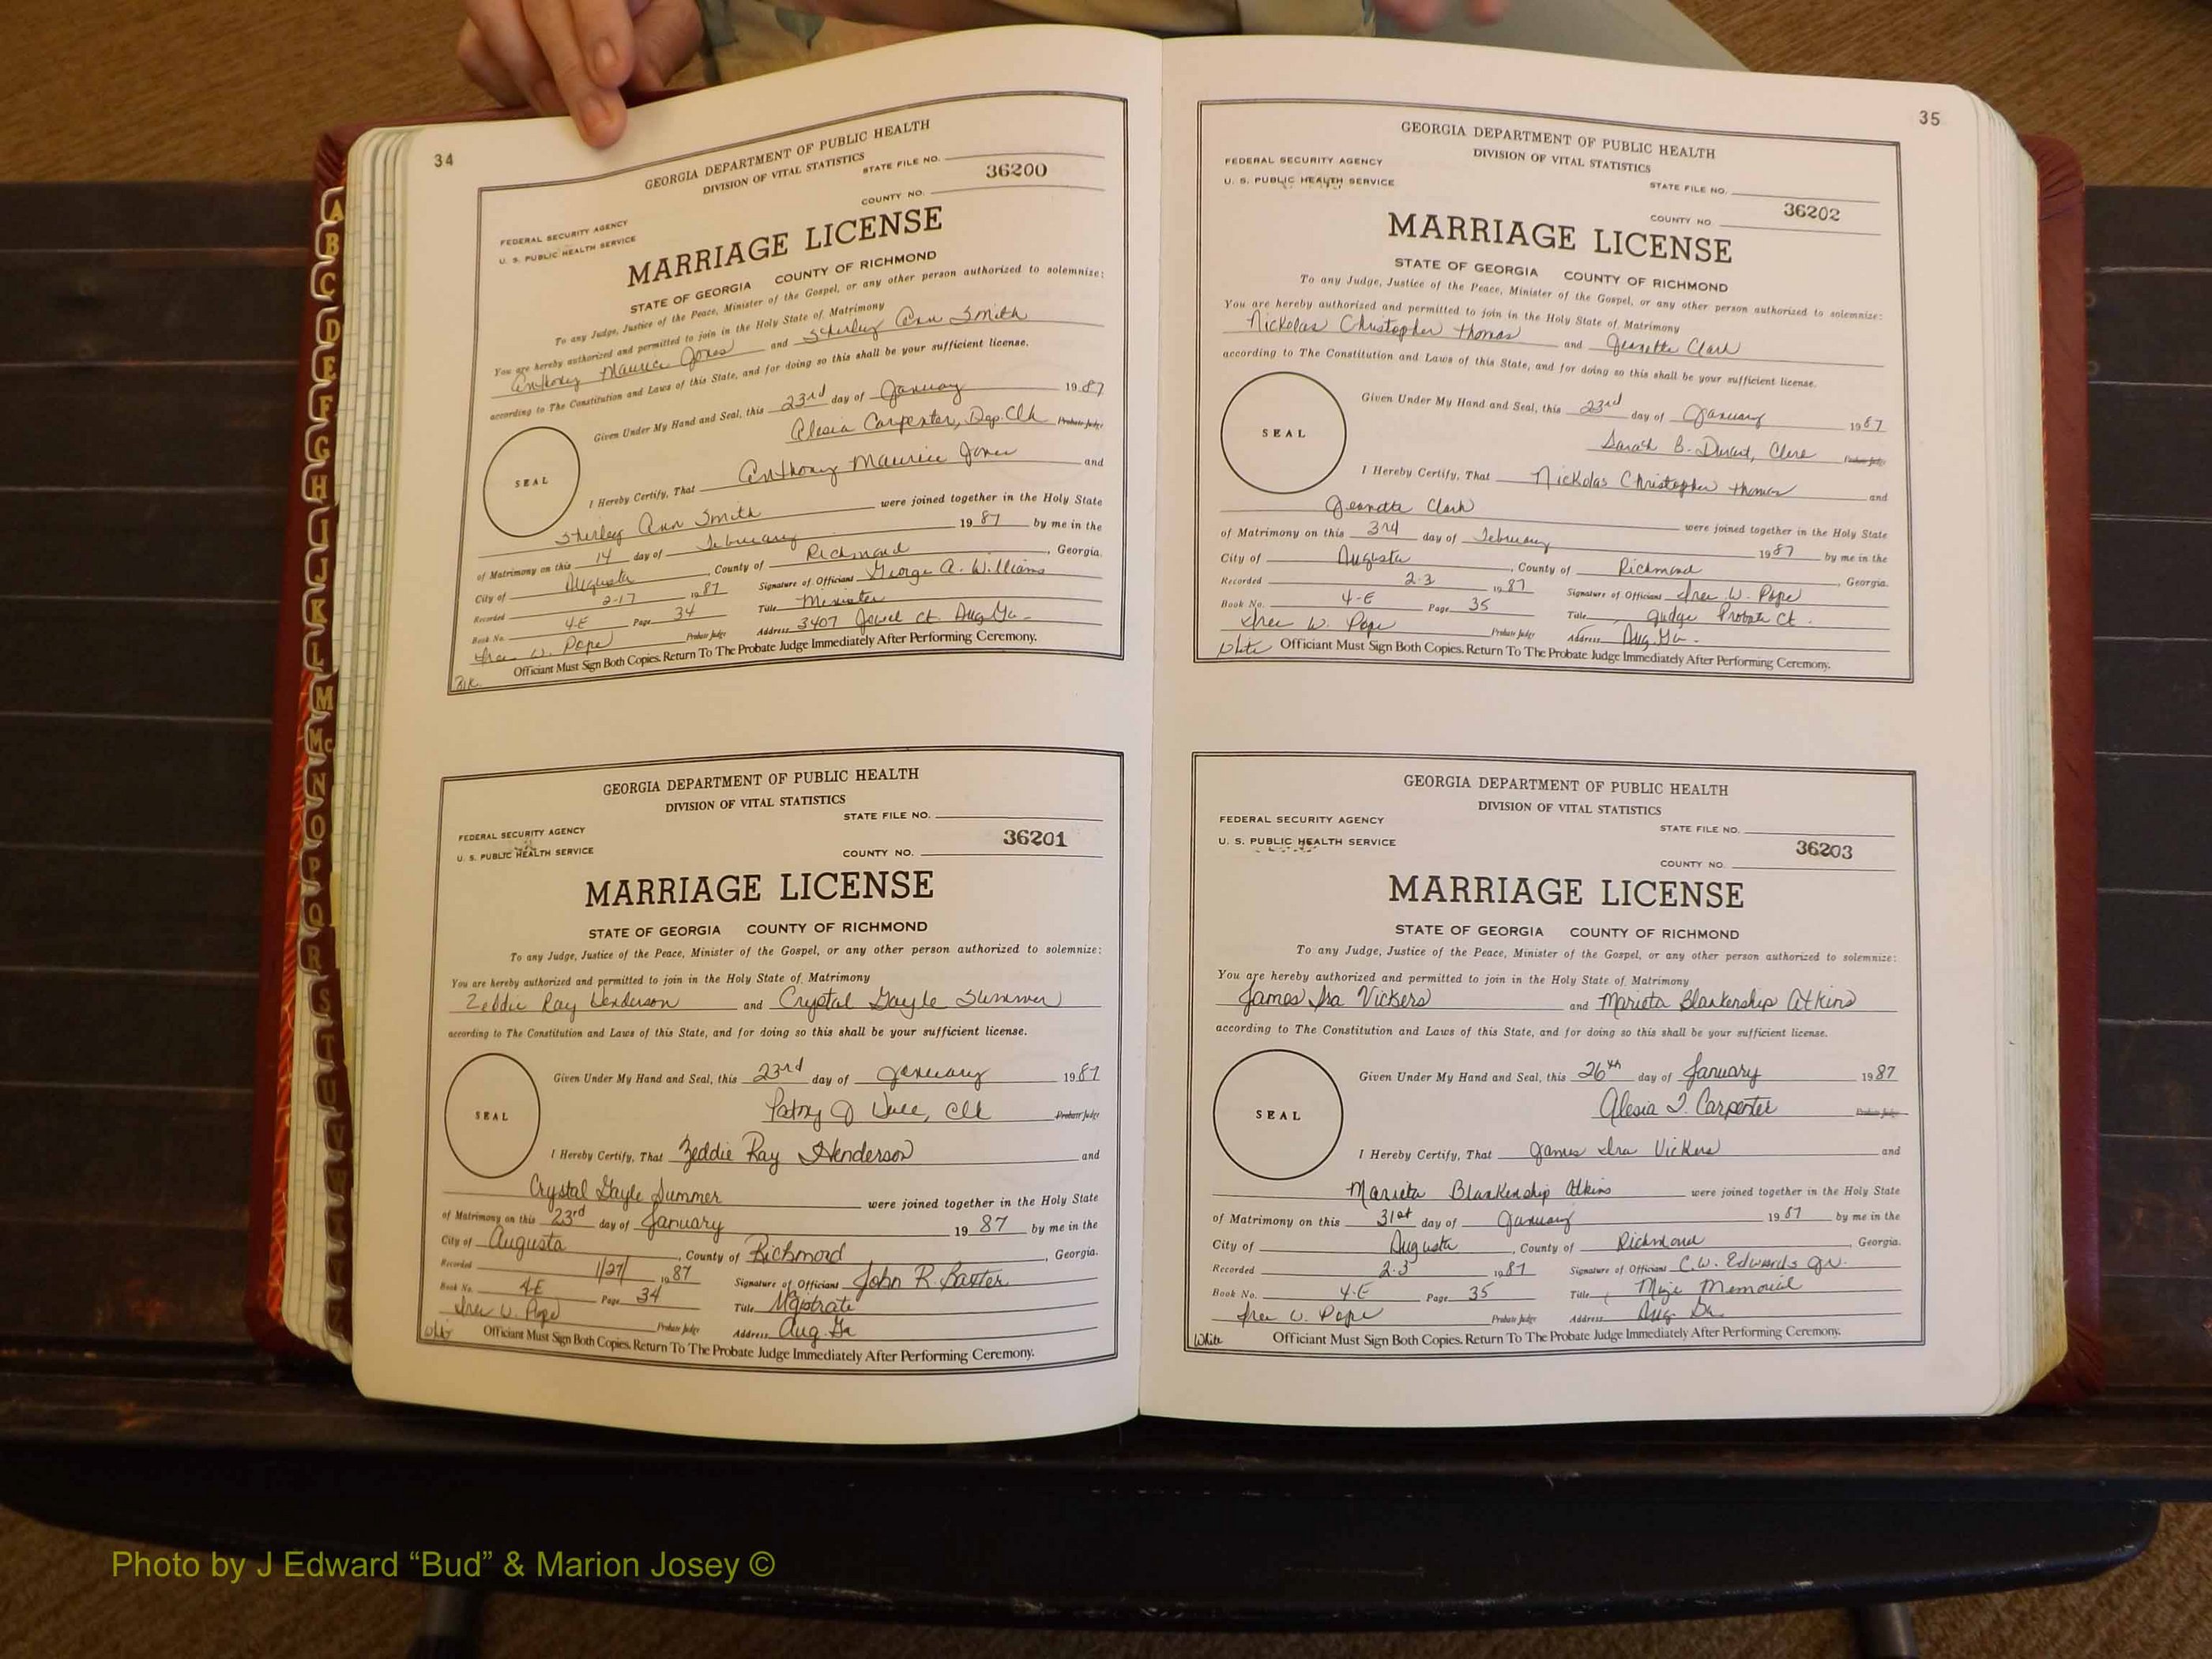 34
GEORGIA DEPARTMENT OF PUBLIC HEALTH
DIVISION OF VITAL STATISTICS
STATE FILE NO.
36200
COUNTY NO.
FEDERAL SECURITY AGENCY
U. S. PUBLIC HEALTH SERVICE
MARRIAGE LICENSE
STATE OF GEORGIA COUNTY OF RICHMOND
To any Judge, Justice of the Peace, Minister of the Gospel, or any other person authorized to solemnize:
You are hereby authorized and permitted to join in the Holy State of Matrimony
Anthony Maurice Jones and Shirley Ann Smith
according to The Constitution and Laws of this State, and for doing so this shall be your sufficient license.
Given Under My Hand and Seal, this 23rd day of January 1987
Alesia Carpenter, Dep. Clk Probate Judge
SEAL
I Hereby Certify, That Anthony Maurice Jones and
Shirley Ann Smith were joined together in the Holy State
of Matrimony on this 14 day of February 1987 by me in the
City of Augusta, County of Richmond, Georgia.
Recorded 2-17 1987 Signature of Officiant George A. Williams
Book No. 4-E Page 34 Title Minister
W. Pope Probate Judge Address 3407 Jewel Ct. Aug. Ga.
Blk. Officiant Must Sign Both Copies. Return To The Probate Judge Immediately After Performing Ceremony.
GEORGIA DEPARTMENT OF PUBLIC HEALTH
DIVISION OF VITAL STATISTICS
STATE FILE NO.
36201
COUNTY NO.
FEDERAL SECURITY AGENCY
U. S. PUBLIC HEALTH SERVICE
MARRIAGE LICENSE
STATE OF GEORGIA COUNTY OF RICHMOND
To any Judge, Justice of the Peace, Minister of the Gospel, or any other person authorized to solemnize:
You are hereby authorized and permitted to join in the Holy State of Matrimony
Zeddie Ray Henderson and Crystal Gayle Summer
according to The Constitution and Laws of this State, and for doing so this shall be your sufficient license.
Given Under My Hand and Seal, this 23rd day of January 1987
J Clk Probate Judge
SEAL
I Hereby Certify, That Zeddie Ray Henderson and
Crystal Gayle Summer were joined together in the Holy State
of Matrimony on this 23rd day of January 1987 by me in the
City of Augusta, County of Richmond, Georgia.
Recorded 1/27/ 1987 Signature of Officiant John R. Baxter
Book No. 4E Page 34 Title Magistrate
W. Pope Probate Judge Address Aug. Ga
Officiant Must Sign Both Copies. Return To The Probate Judge Immediately After Performing Ceremony.
35
GEORGIA DEPARTMENT OF PUBLIC HEALTH
DIVISION OF VITAL STATISTICS
FEDERAL SECURITY AGENCY
U. S. PUBLIC HEALTH SERVICE
STATE FILE NO.
36202
COUNTY NO.
MARRIAGE LICENSE
STATE OF GEORGIA COUNTY OF RICHMOND
To any Judge, Justice of the Peace, Minister of the Gospel, or any other person authorized to solemnize:
You are hereby authorized and permitted to join in the Holy State of Matrimony
Nickolas Christopher Thomas and Jeanette Clark
according to The Constitution and Laws of this State, and for doing so this shall be your sufficient license.
Given Under My Hand and Seal, this 23rd day of January 1987
Sarah B. Probate Judge
SEAL
I Hereby Certify, That Nickolas Christopher Thomas and
Jeanette Clark were joined together in the Holy State
of Matrimony on this 3rd day of February 1987 by me in the
City of Augusta, County of Richmond, Georgia.
Recorded 2-3 1987 Signature of Officiant W. Pope
Book No. 4-E Page 35 Title Judge Probate Ct.
W. Pope Probate Judge Address Aug. Ga.
White Officiant Must Sign Both Copies. Return To The Probate Judge Immediately After Performing Ceremony.
GEORGIA DEPARTMENT OF PUBLIC HEALTH
DIVISION OF VITAL STATISTICS
FEDERAL SECURITY AGENCY
U. S. PUBLIC HEALTH SERVICE
STATE FILE NO.
36203
COUNTY NO.
MARRIAGE LICENSE
STATE OF GEORGIA COUNTY OF RICHMOND
To any Judge, Justice of the Peace, Minister of the Gospel, or any other person authorized to solemnize:
You are hereby authorized and permitted to join in the Holy State of Matrimony
James Ira Vickers and Marieta Blankenship Atkins
according to The Constitution and Laws of this State, and for doing so this shall be your sufficient license.
Given Under My Hand and Seal, this 26th day of January 1987
Alesia J. Carpenter Probate Judge
SEAL
I Hereby Certify, That James Ira Vickers and
Marieta Blankenship Atkins were joined together in the Holy State
of Matrimony on this 31st day of January 1987 by me in the
City of Augusta, County of Richmond, Georgia.
Recorded 2-3 1987 Signature of Officiant C.W. Edwards Jr.
Book No. 4-E Page 35 Title Memorial
W. Pope Probate Judge Address Aug. Ga.
White Officiant Must Sign Both Copies. Return To The Probate Judge Immediately After Performing Ceremony.
A
B
C
D
E
F
G
H
I
J
K
L
M
Mc
N
O
P
Q
R
S
T
U
V
W
Photo by J Edward “Bud” & Marion Josey ©